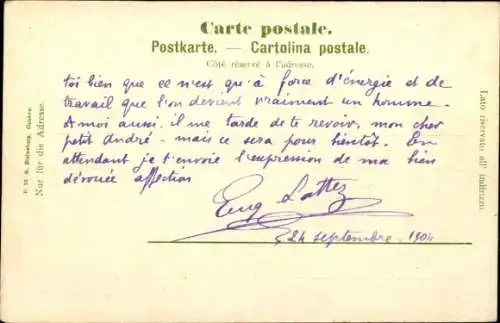 Carte postale.
Postkarte. — Cartolina postale.
Côté réservé à l'adresse.
toi bien que ce n'est qu'à force d'énergie et de
travail que l'on devient vraiment un homme.
A moi aussi, il me tarde de te revoir, mon cher
petit André - mais ce sera pour bientôt. En
attendant je t'envoie l'expression de ma bien
dévouée affection
Eug Lattes
24 septembre 1904
Nur für die Adresse.
Lato riservato all' indirizzo.